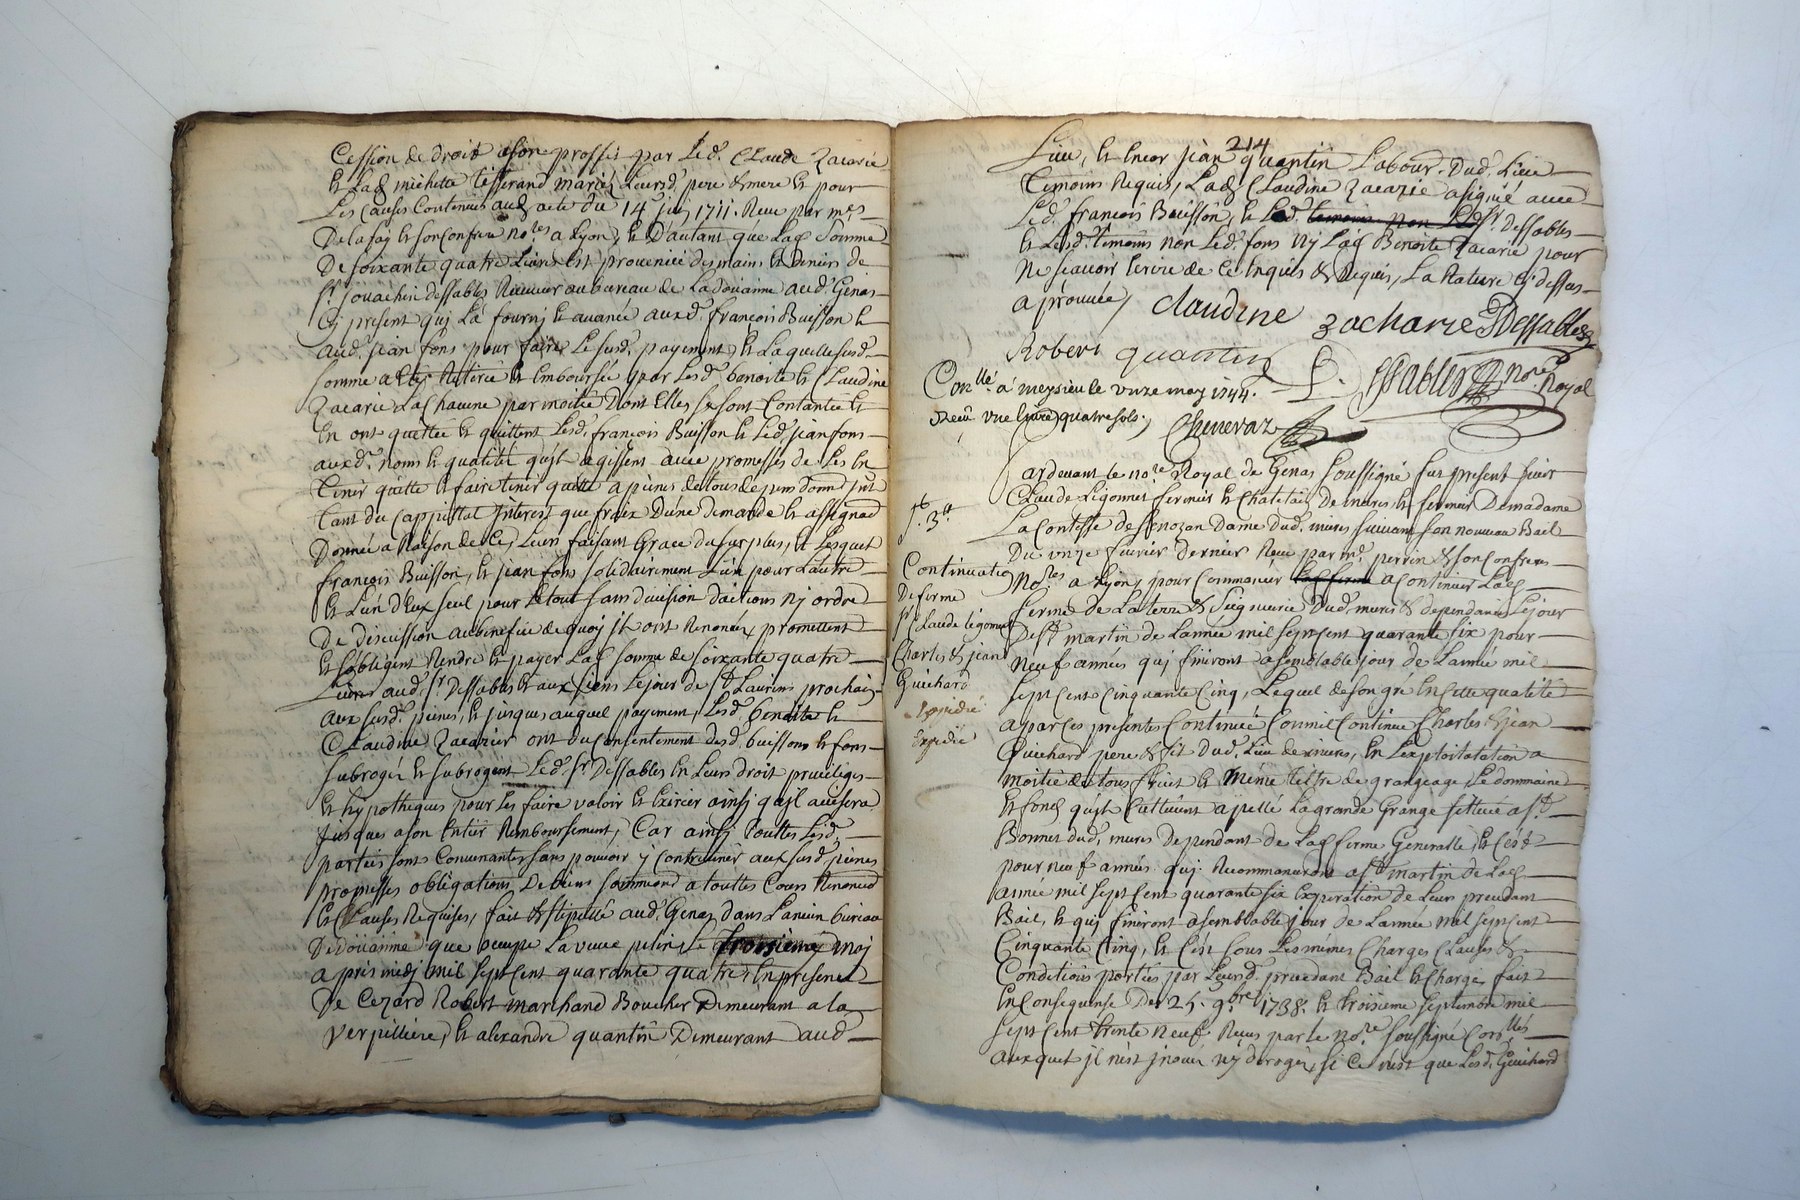 Cession de droit a son proffit par led. Claude Zacarie
et lad. michette tisserand mariés leursd. pere & mere et pour
Les causes Contenues aud. acte du 14 juin 1711. Receu par mes
Delafay et son confrere nores a Lyon, et D'autant que lad. somme
De soixante quatre Livres est provenüe des mains et deniers de
sr. jouachin dessables Receveur au bureau de La doüanne aud. Genas
Cy present quj La fournj et avancé auxd. françois Buisson et
aud. jean fons pour faire Le susd. payement, et Laquelle susd.
somme a Retirée et Emboursée par Lesd. benoite et Claudine
Zacarie La Chacune par moitié Dont Elles se sont Contantée et
En ont quittée et quittent Lesd. françois Buisson et Led. jean fons
auxd. noms et qualité qu'jls agissent avec promesses de Les En
tenir quitte et faire tenir quitte a peines de tous depens dom
tant du Cappittal Interest que fraix D'une demande et assignaon
Donnée a Raison de Ce, Leur faisant Grace du surplus, et Lesquels
françois Buisson, et jean fons solidairement L'un pour L'autre
et L'un d'Eux seul pour Le tout sans division d'actions nj ordre
De discussion au benefice de quoj jls ont Renoncé, promettent
et s'obligent Rendre et payer Lad. somme de soixante quatre
Livres aud. sr. Dessables et aux siens Le jour de st. Laurens prochain
aux susd. peines, et jusques auquel payement, Lesd. benoite et
Claudine Zacarier ont du Consentement desd. buissons et fons
subrogé et subrogent Led. sr. Dessables En Leurs droit privileges
et hypotheques pour Les faire valoir et Exercer ainsj qu'jl avisera
jusques a son Entier Remboursement, Car ainsj Touttes Lesd.
parties sont Convenantes sans pouvoir y Contrevenir aux susd. peines
promesses obligations De biens soummiond a touttes Cours Renonciaon
Et Clauses Requises, fait & stipullé aud. Genas dans L'ancien bureau
De doüanne que occupe La veuve le troisieme maj
apris midj mil sept Cent quarante quatre, En presence
De Cezard Robert marchand Boucher Demeurant a la
Verpilliere, et alexandre quantin Demeurant aud.
214
Lieu, et Encor jean quantin Labour. Dud. Lieu
temoins Requis, Lad. Claudine Zacarie a signé avec
Led. françois Buisson, et Led. temoins non Led. sr. Dessables
et Lesd. temoins non Led. fons nj Lad. Benoite Zacarie pour
ne sçavoir Ecrire de Ce Enquis & Requis, La Rature Cj dessus
aprouvée,
Claudine zacharie Dessables
Robert quantin
Dessables nore. Royal
Conllé. a meysieu le unze may 1744.
Receu une livre quatre sols.
Chenevaz
Pardevant le nore. Royal de Genas soussigné fut present sieur
Claude Legonnet fermier et Chatelain De mures et fermier De madame
La Contesse de senozan Dame dud. mures suivant son nouveau Bail
Du unze fevrier dernier Receu par me. perrin & son Confrere
Nores a Lyon, pour Commancer lad ferme a Continuer Lad.
ferme de La terre & seigneurie Dud. mures & dependances Le jour
De st. martin de L'année mil sept cent quarante six pour
Neuf années quj finiront a semblable jour de L'année mil
sept Cent Cinquante Cinq, Lequel de son gré En cette qualité
a par Ces presentes Continué Comme Continue Charles & jean
Guichard pere & fils dud. Lieu de mures, En L'exploitatation a
moitié de tous fruits et même tiltre de grangeage Le dommaine
et fond qu'jls Cultivent apellé La grande Grange scittuée a st.
Bonnet dud. mures dependant de Lad. ferme Generalle, et C'est
pour neuf années quj Recommanceront a st. martin de Lad.
année mil sept Cent quarante six Expiration de Leur precedant
Bail, et quj finiront a semblable jour de L'année mil sept cent
Cinquante Cinq, et C'est sous Les mêmes Charges Clauses &
Conditions portées par Leursd. precedant Bail et Charge fait
En Consequense Des 25. 9bre 1738. et troisieme septembre mil
sept Cent trente neuf Receus par le nore. soussigné Conllés
auxquels jl n'est jnové nj derogé, si Ce n'est que Lesd. Guichard
Continuation
De ferme
sr. Claude Legonnet
Charles & jean
Guichard
Expedié
Expedié